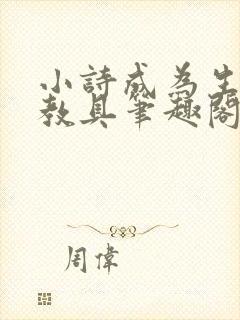 小詩成為生
教具筆趣閣
周偉